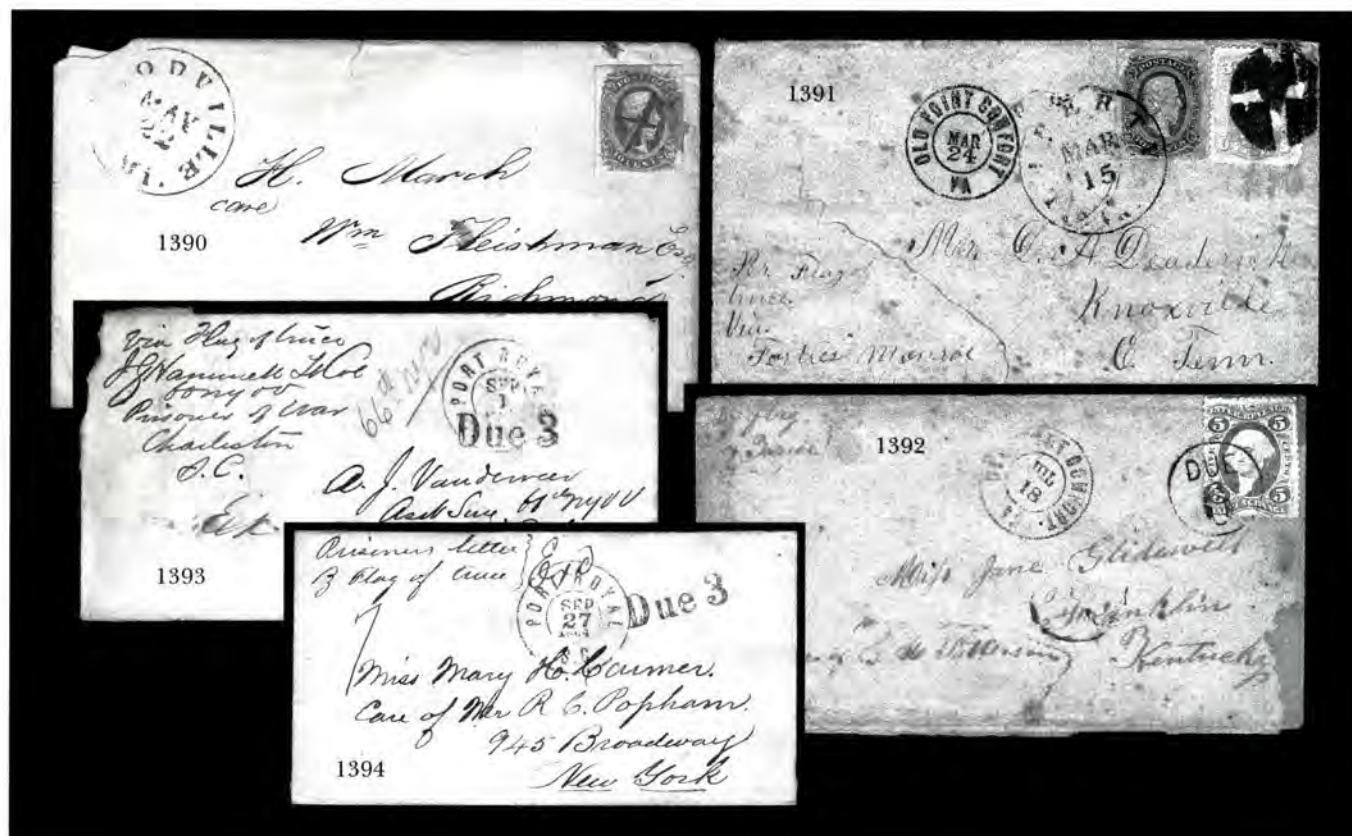 ODVILLE
MAY
22
H. March
care
Wm Fleishman Esq
Richmond
1390
1391
OLD POINT COMFORT
MAR
24
VA
MAR
15
POSTAGE
Mr. O. A. Deaderick
Knoxville
E. Tenn.
Per Flag of
truce
Via
Fortress Monroe
via Flag of truce
Prisoner of War
Charleston
S.C.
Ex
66th NYV
PORT ROYAL
SEP
1
Due 3
A. J. Vanderveer
Asst Surg 66th NYVV
1393
1392
JUL
18
POINT COMFORT. VA
DUE
5 5
5 5
Miss Jane Glidewell
Franklin
Kentucky
Prisoners letter
By Flag of truce
Ex
PORT ROYAL
SEP
27
1864
S.C.
Due 3
Miss Mary H.
Care of Mr R. C. Popham.
945 Broadway
New York
1394